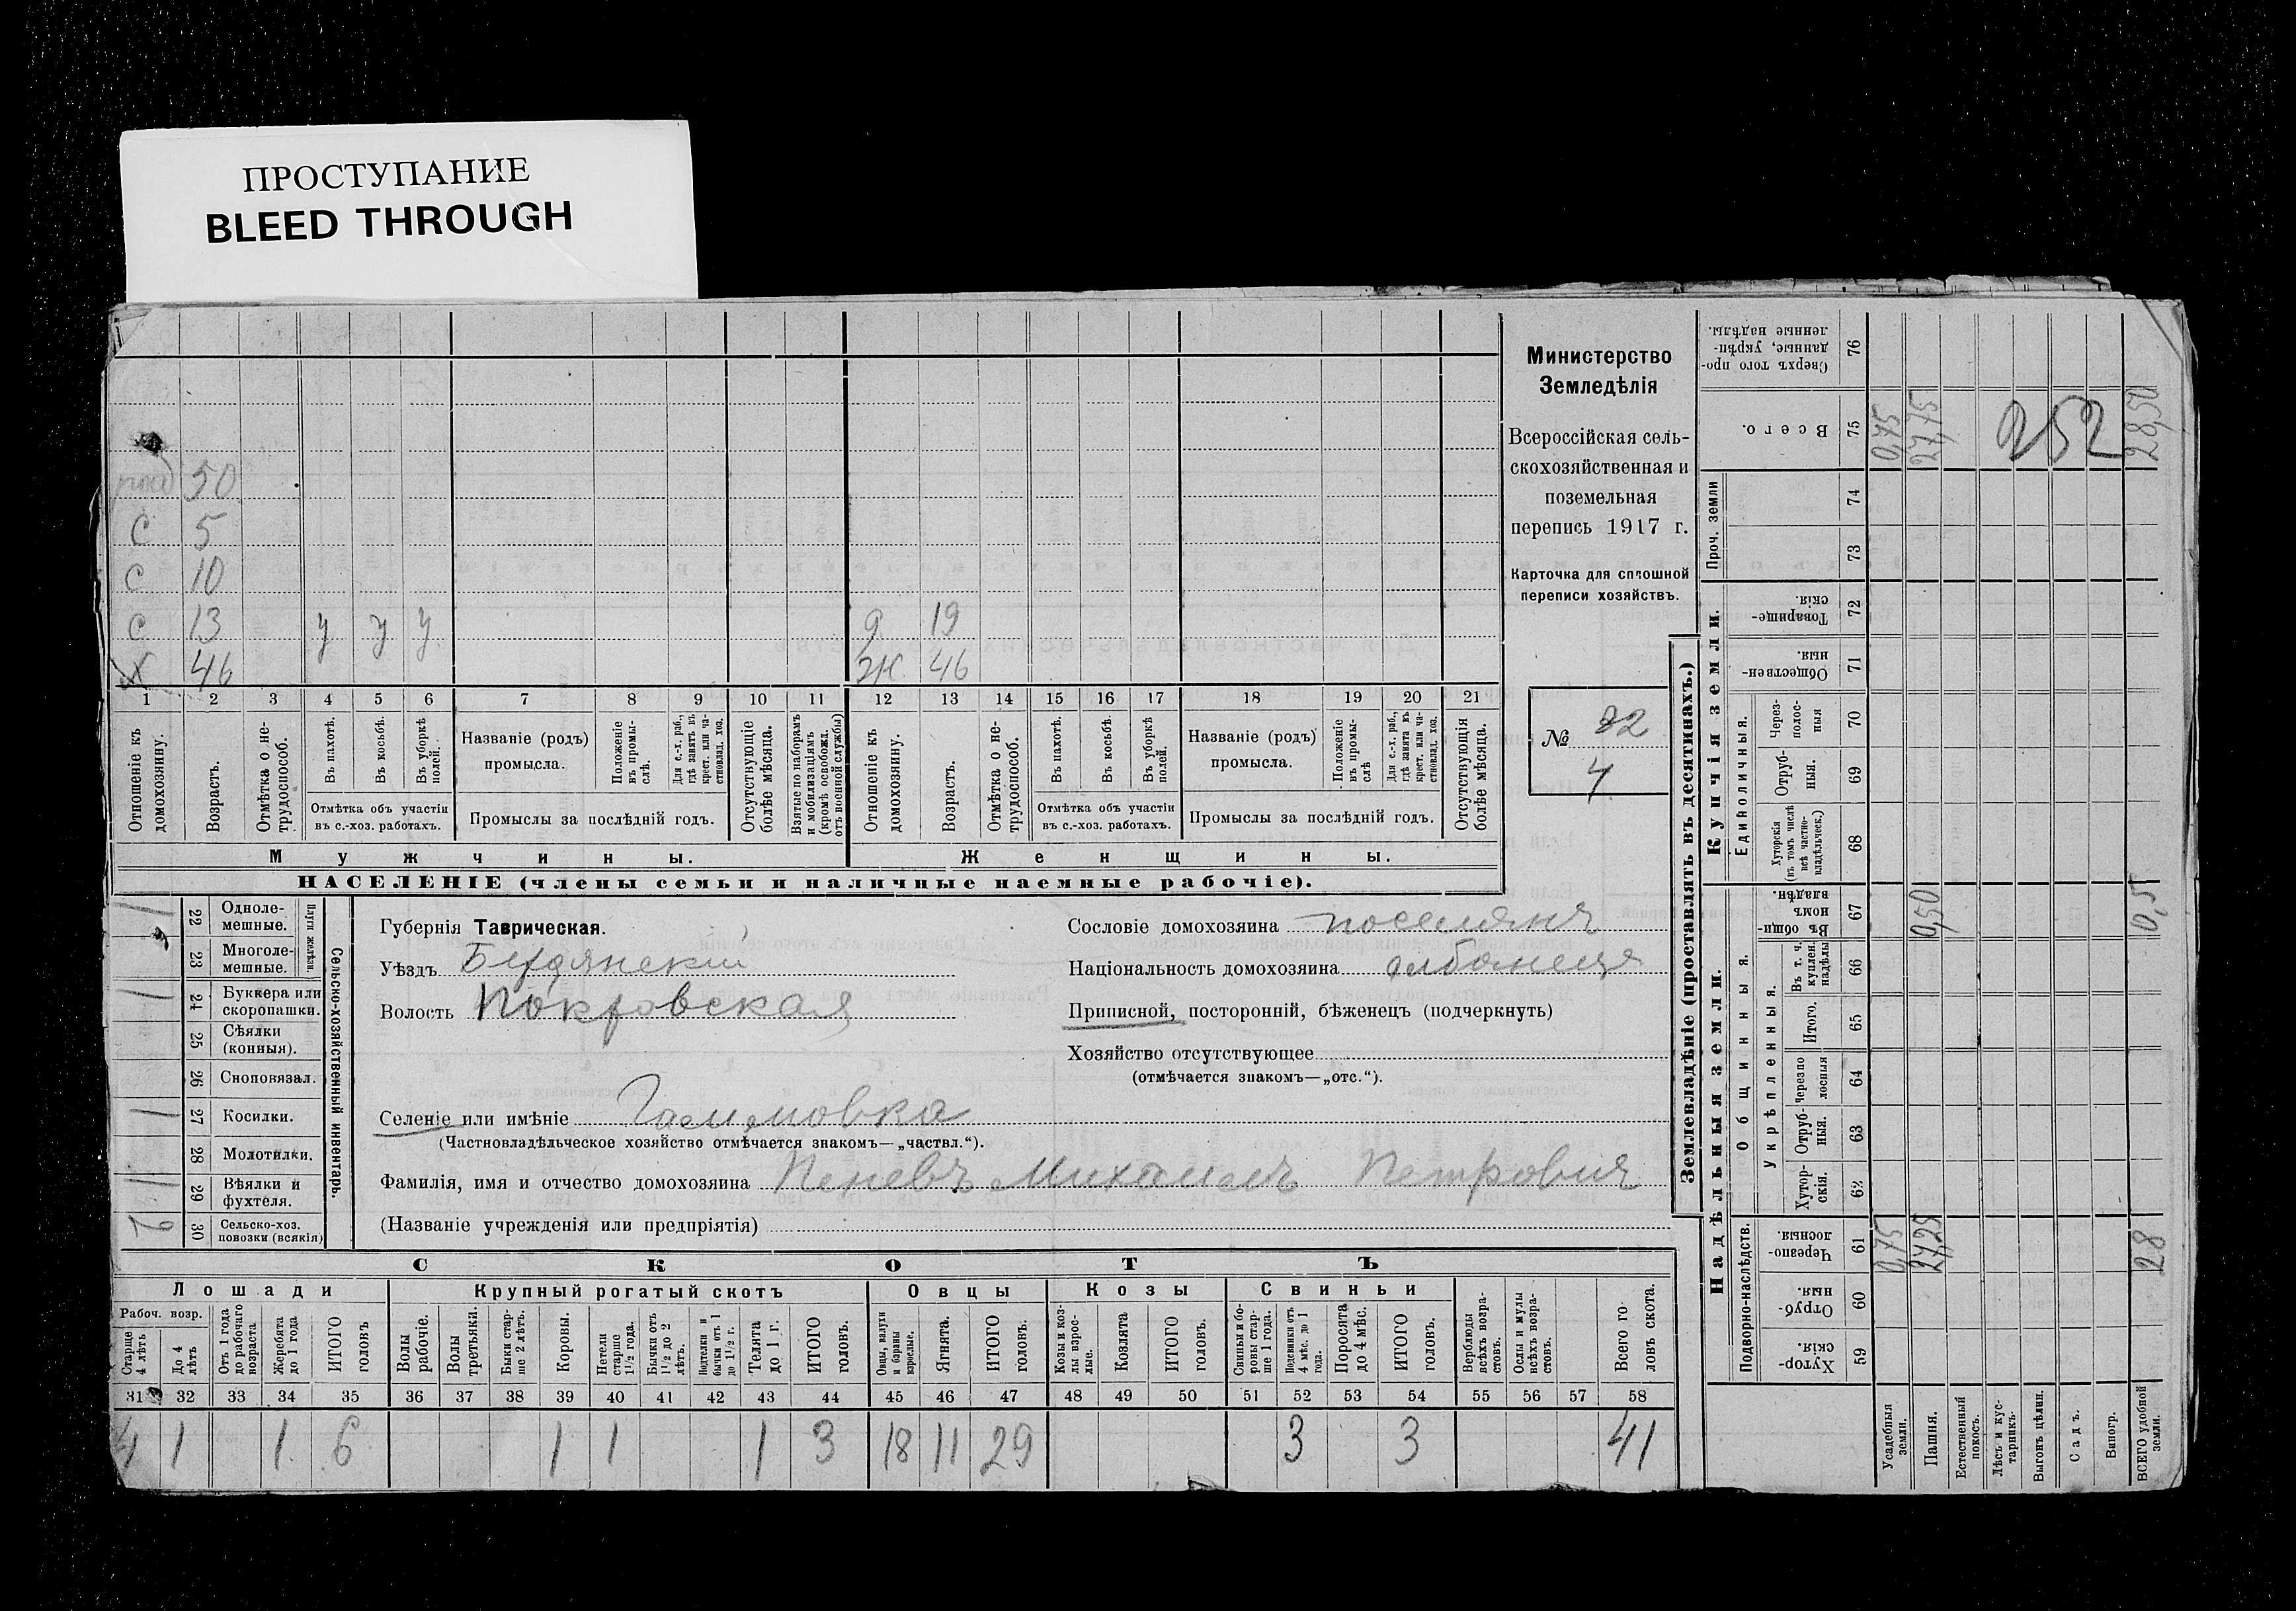 ПРОСТУПАНИЕ
BLEED THROUGH
Министерство
Земледѣлія
Всероссійская сель-
скохозяйственная и
поземельная
перепись 1917 г.
Карточка для сплошной
переписи хозяйствъ.
№ 22
4
50
С 5
С 10
С 13 у у у д 19
Х 46 ж 46
1 2 3 4 5 6 7 8 9 10 11 12 13 14 15 16 17 18 19 20 21
Отношеніе къ домохозяину.
Возрастъ.
Отмѣтка о не-трудоспособ.
Въ пахотѣ.
Въ косьбѣ.
Въ уборкѣ полей.
Отмѣтка объ участіи
въ с.-хоз. работахъ.
Названіе (родъ)
промысла.
Положеніе въ промы-слѣ.
Для с.-х. раб., гдѣ занятъ въ крест. или ча-стновлад. хоз.
Промыслы за послѣдній годъ.
Отсутствующіе болѣе мѣсяца.
Взятые по наборамъ и мобилизаціямъ (кромѣ освобожд. отъ военной службы)
Отношеніе къ домохозяину.
Возрастъ.
Отмѣтка о не-трудоспособ.
Въ пахотѣ.
Въ косьбѣ.
Въ уборкѣ полей.
Отмѣтка объ участіи
въ с.-хоз. работахъ.
Названіе (родъ)
промысла.
Положеніе въ промы-слѣ
Для с.-х. раб., гдѣ занята въ крест. или ча-стновлад. хоз.
Промыслы за послѣдній годъ.
Отсутствующія болѣе мѣсяца.
Мужчины. Женщины.
НАСЕЛЕНІЕ (члены семьи и наличные наемные рабочіе).
Сельско-хозяйственный инвентарь.
Плуги желѣзн.
1 22 Одноле-мешные.
23 Многоле-мешные.
1 24 Буккера или скоропашки.
25 Сѣялки (конныя).
26 Сноповязал.
1 27 Косилки.
28 Молотилки.
1 29 Вѣялки и фухтеля.
2 30 Сельско-хоз. повозки (всякія)
Губернія Таврическая.
Уѣздъ Бердянскій
Волость Покровская
Селеніе или имѣніе Гаммовка
(Частновладѣльческое хозяйство отмѣчается знакомъ—„частвл.“).
Фамилія, имя и отчество домохозяина Пеневъ Михаилъ Петрович
(Названіе учрежденія или предпріятія)
Сословіе домохозяина поселянъ
Національность домохозяина албанецъ
Приписной, посторонній, бѣженецъ (подчеркнуть)
Хозяйство отсутствующее
(отмѣчается знакомъ—„отс.“).
СКОТЪ
Лошади Крупный рогатый скотъ Овцы Козы Свиньи
Рабоч. возр.
Старше 4 лѣтъ
До 4 лѣтъ
Отъ 1 года до рабочаго возраста
Жеребята до 1 года
ИТОГО головъ
Волы рабочіе.
Волы третьяки.
Быки стар-ше 2 лѣтъ.
Коровы.
Нетели старше 1½ года.
Бычки отъ 1½ до 2 лѣтъ.
Подтелки и бычки отъ 1 до 1½ г.
Телята до 1 г.
ИТОГО головъ.
Овцы, валухи и бараны взрослые.
Ягнята.
ИТОГО головъ.
Козы и коз-лы взрос-лые.
Козлята
ИТОГО головъ.
Свиньи и бо-ровы стар-ше 1 года.
Подсвинки отъ 4 мѣс. до 1 года.
Поросята до 4 мѣс.
ИТОГО головъ.
Верблюды всѣхъ возра-стовъ.
Ослы и мулы всѣхъ возра-стовъ.
Всего го-ловъ скота.
31 32 33 34 35 36 37 38 39 40 41 42 43 44 45 46 47 48 49 50 51 52 53 54 55 56 57 58
4 1 1 6 1 1 1 3 18 11 29 3 3 41
Землевладѣніе (проставлять въ десятинахъ.)
Надѣльныя земли. Купчія земли. Проч. земли
Подворно-наслѣдств.
Общинныя.
Укрѣпленныя.
Единоличныя.
Хутор-скія. 59
Отруб-ныя. 60
Черезпо-лосныя. 61 0,75 27,25 28
Хутор-скія. 62
Отруб-ныя. 63
Черезпо-лосныя 64
Итого. 65
Въ т. ч. куплен. надѣлы 66
Въ общи-номъ владѣн. 67 0,50 0,5
Хуторскія (въ томъ числѣ всѣ частно-владѣльческ.) 68
Отруб-ныя. 69
Через-полос-ныя 70
Обществен-ныя. 71
Товарище-скія. 72
73
74
Всего. 75 0,75 27,75 252 28,50
Сверхъ того про-данные, укрѣп-ленные надѣлы. 76
Усадебныя земли.
Пашня.
Естественный покосъ.
Лѣсъ и кус-тарникъ.
Выгонъ цѣлин.
Садъ.
Виногр.
ВСЕГО удобной земли.